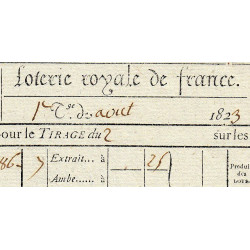 Loterie royale de france.
1er Tge. d'aout 1823
pour le TIRAGE du 2 sur les
86 7 Extrait... à 25
Ambe.... à
Produi
des